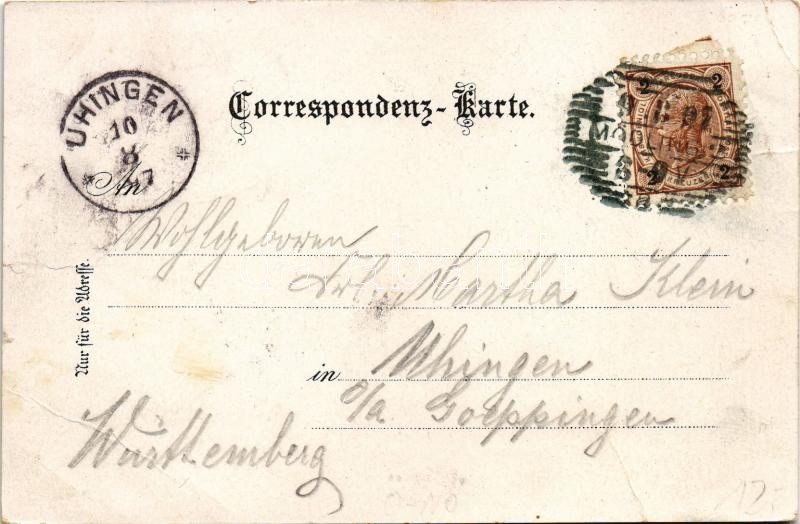 UHINGEN
10
8
97
Correspondenz-Karte.
2 2
MÖDLING
KREUZER
2 2
An
Wohlgeboren
Frl. Martha Klein
in Uhingen
o/a Goeppingen
Württemberg
Nur für die Adresse.
12.-